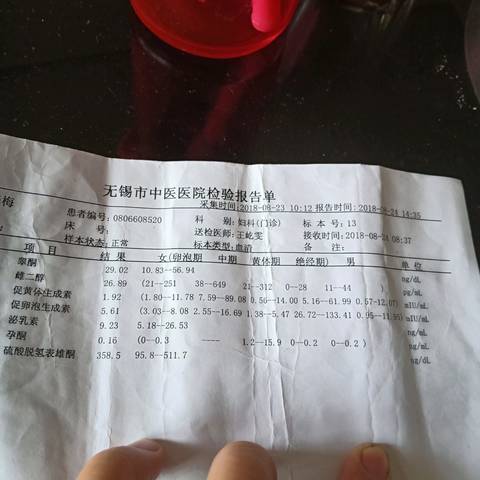 无锡市中医医院检验报告单
采集时间:2018-08-23 10:12 报告时间:2018-08-24 14:35
梅 患者编号:0806608520 科 别:妇科(门诊) 标 本 号:13
床 号: 送检医师:王屹雯 接收时间:2018-08-24 08:37
样本状态:正常 标本类型:血清 备 注:
项 目 结 果 女(卵泡期 中期 黄体期 绝经期) 男 单 位
睾酮 29.02 10.83--56.94 ng/dL
雌二醇 26.89 (21--251 38--649 21-312 0--28 11--44 ) pg/mL
促黄体生成素 1.92 (1.80--11.78 7.59--89.08 0.56--14.00 5.16--61.99 0.57-12.07) mIU/mL
促卵泡生成素 5.61 (3.03--8.08 2.55--16.69 1.38--5.47 26.72--133.41 0.95--11.95) mIU/mL
泌乳素 9.23 5.18--26.53 ng/mL
孕酮 0.16 (0--0.3 ---- 1.2--15.9 0--0.2 0--0.2 ) ng/mL
硫酸脱氢表雄酮 358.5 95.8--511.7 ug/dL